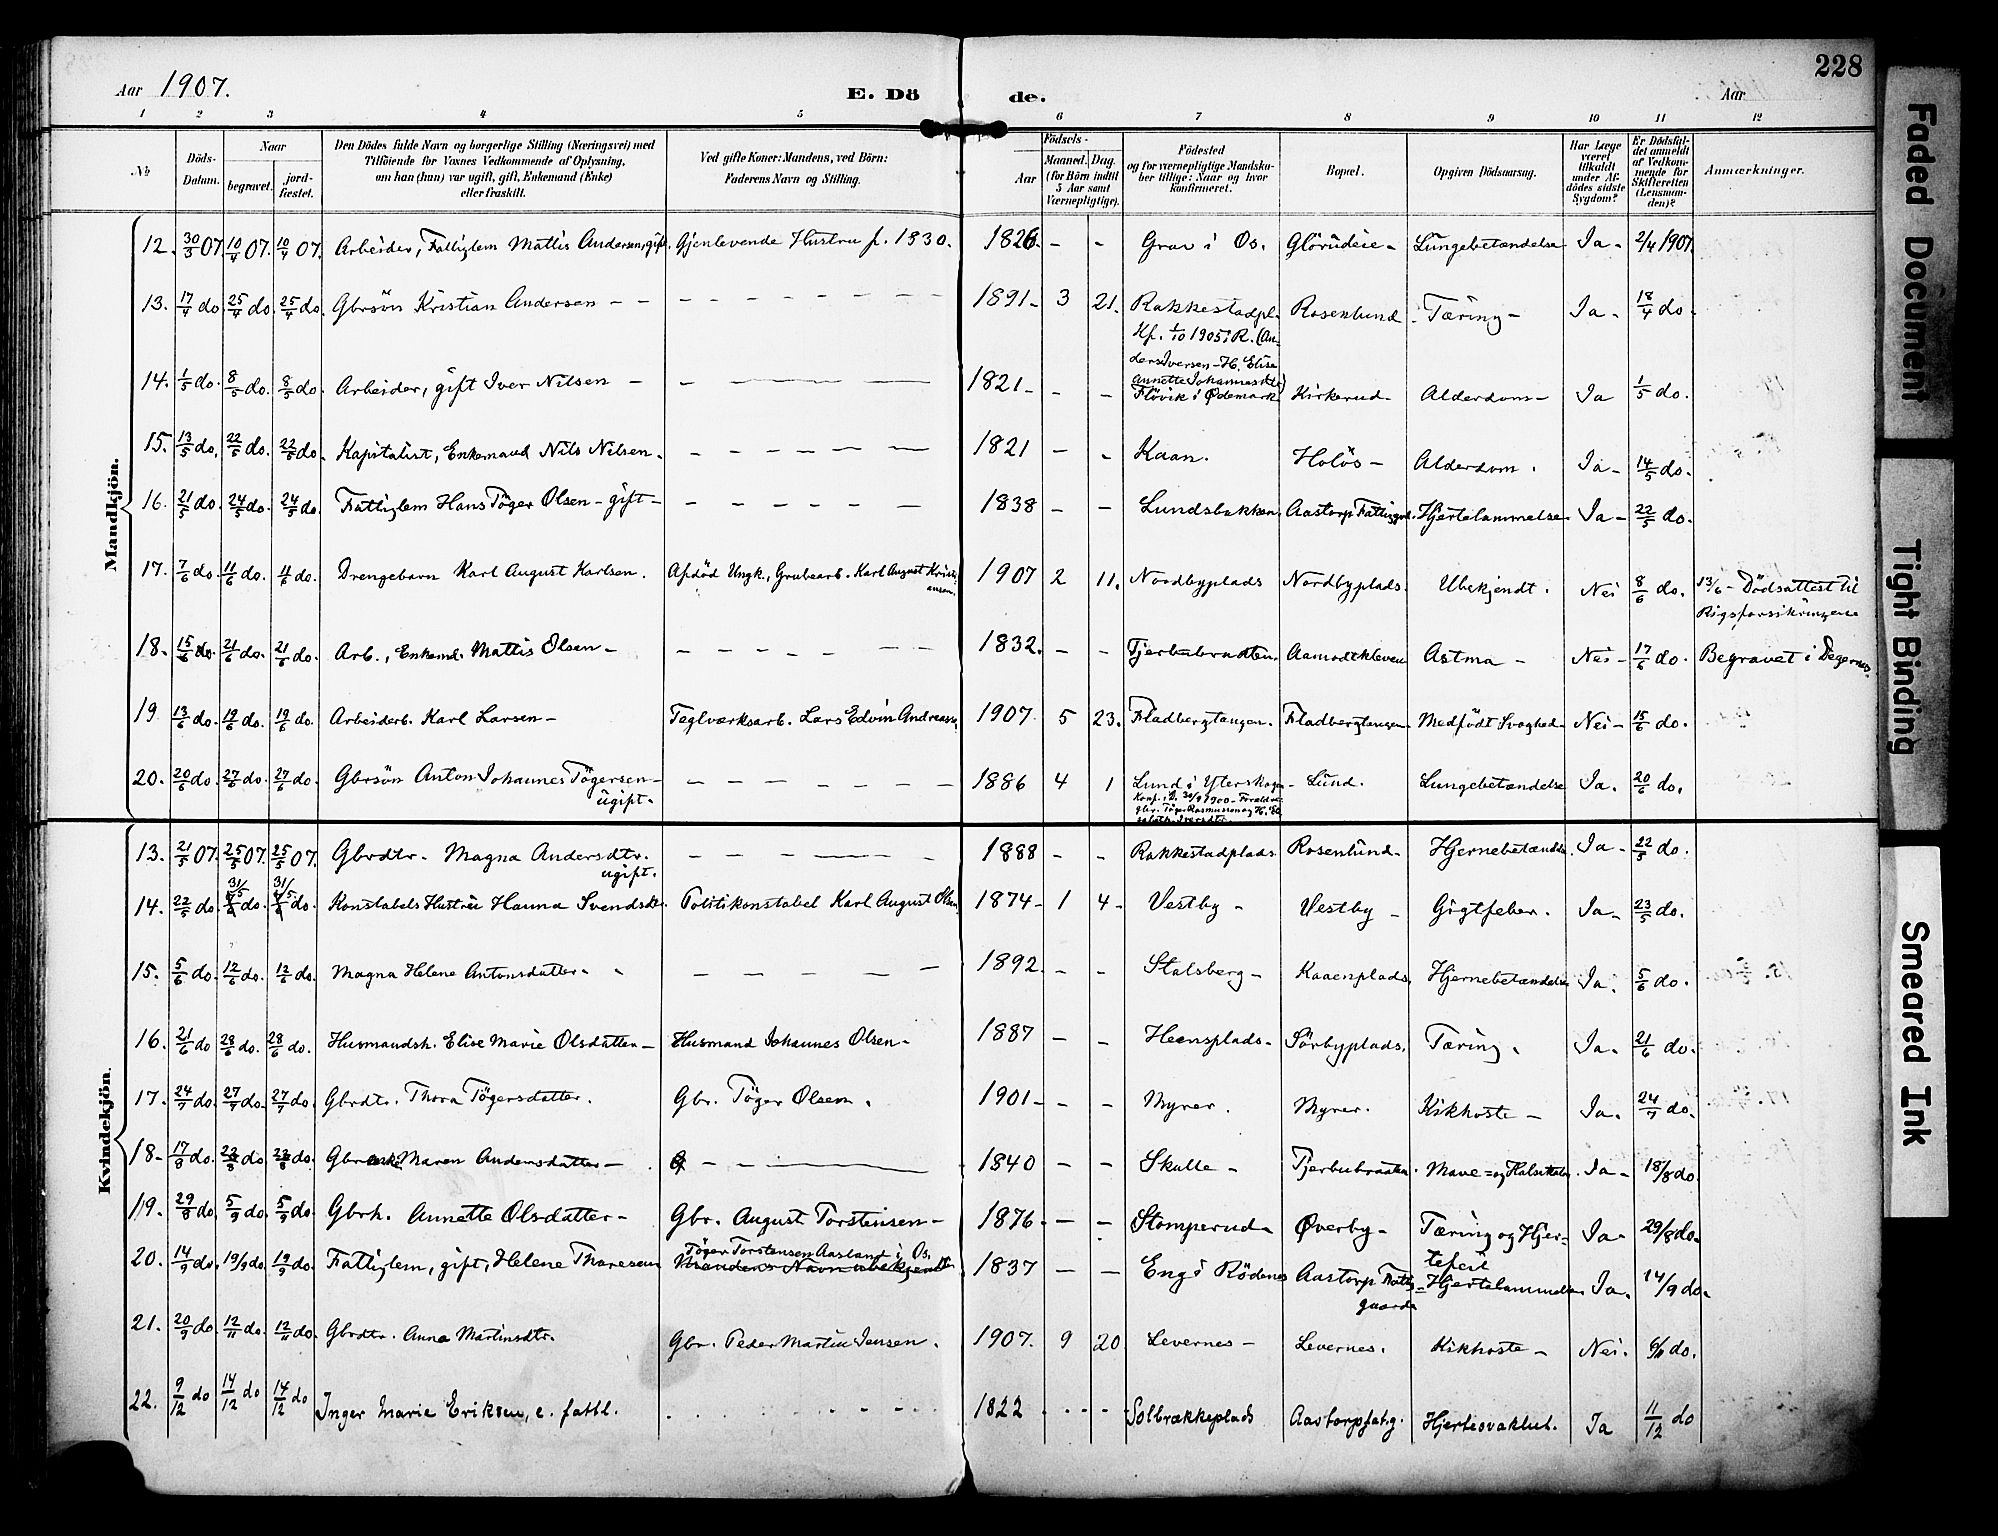 228
Aar 1907.
E. Dö de.
Aar
1 2 3 4 5 6 7 8 9 10 11 12
No
Döds-Datum.
Naar
begravet.
jord-fæstet.
Den Dödes fulde Navn og borgerlige Stilling (Næringsvei) med
Tilföiende for Voxnes Vedkommende af Oplysning,
om han (hun) var ugift, gift, Enkemand (Enke)
eller fraskilt.
Ved gifte Koner: Mandens, ved Börn:
Faderens Navn og Stilling.
Födsels-
Aar
Maaned. Dag.
(for Börn indtil
5 Aar samt
Værnepligtige).
Födested
og for værnepligtige Mandska-
ber tillige: Naar og hvor
konfirmeret.
Bopæl.
Opgiven Dödsaarsag.
Har Læge
været
tilkaldt
under Af-
dödes sidste
Sygdom?
Er Dödsfal-
det anmeldt
af Vedkom-
mende for
Skifteretten
(Lensman-
den)?
Anmærkninger.
Mandkjön.
12. 30/3 07. 10/4 07. 10/4 07. Arbeider, Fattiglem Mattis Andersen, gift. Gjenlevende Hustru f. 1830. 1826. - - Grav i Os. Glörudeie - Lungebetændelse Ja - 2/4 1907.
13. 17/4 do. 25/4 do. 25/4 do. Gbrsön Kristian Andersen - - 1891 - 3 21. Rakkestadpl. Rosenlund - Tæring - Ja - 18/4 do.
Kf. 1/10 1905 i R. (An-
ders Iversen - H. Elise
Annette Johannesdtr)
14. 1/5 do. 8/5 do. 8/5 do. Arbeider, gift Iver Nilsen - 1821 - - - Flövik i Ødemark Kirkerud - Alderdom - Ja 1/5 do.
15. 13/5 do. 22/5 do. 22/5 do. Kapitalist, Enkemand Nils Nilsen. 1821 - - Kaan. Holös - Alderdom. Ja - 14/5 do.
16. 21/5 do. 24/5 do. 24/5 do. Fattiglem Hans Töger Olsen - gift - 1838 - - Lundsbakken. Aastorp Fattiggrd. Hjertelammelse Ja - 22/5 do.
17. 7/6 do. 11/6 do. 11/6 do. Drengebarn Karl August Karlsen. Afdöd Ungk., Grubearb. Karl August Kristi-
ansen. 1907 2 11. Nordbyplads Nordbyplads. Ubekjendt. Nei 8/6 do. 13/6 - Dödsattest til
Rigsforsikringen
18. 15/6 do. 21/6 do. 21/6 do. Arb., Enkemd. Mattis Olsen - 1832. - - Tjerbubraaten. Aamodtkleven Astma - Nei - 17/6 do. Begravet i Degernes.
19 13/6 do. 19/6 do. 19/6 do. Arbeiderb. Karl Larsen - Teglværksarb. Lars Edvin Andreassen 1907. 5 23. Fladbergtangen. Fladbergtangen. Medfödt Svaghed - Nei - 15/6 do.
20. 20/6 do. 27/6 do. 27/6 do. Gbrsön Anton Johannes Tögersen -
ugift. 1886 4 1 Lund i Ytterskogen - Lund. Lungebetændelse Ja. 20/6 do.
Konf. i R. 30/9 1900 - Forældre:
gbr. Töger Rasmussen og H. El-
Kvindekjön.
13. 21/5 07. 25/5 07. 25/5 07. Gbrdtr. Magna Andersdtr.
ugift. 1888 - - Rakkestadplads Rosenlund - Hjernebetændelse. Ja - 22/5 do.
14. 22/5 do. 31/5 do. 31/5 do. Konstabels Hustru Hanna Svendsdtr. Politikonstabel Karl August Olsen 1874 - 1 4 - Vestby - Vestby - Gigtfeber. Ja - 23/5 do.
15. 5/6 do. 12/6 do. 12/6 do. Magna Helene Antonsdatter - 1892. - - Stalsberg - Kaaenplads. Hjernebetændelse Ja. 5/6 do.
16. 21/6 do 28/6 do. 28/6 do. Husmandsh. Elise Marie Olsdatter - Husmand Johannes Olsen - 1887 - - Heensplads - Sörbyplads. Tæring. Ja. 21/6 do.
17. 24/7 do. 27/7 do. 27/7 do. Gbrdtr. Thora Tögersdatter. Gbr. Töger Olsen. 1901 - - - Myrer. Myrer. Kikhoste - Ja. 24/7 do.
18 - 17/8 do. 23/8 do 23/8 do. Gbrenke Maren Andersdatter - 1840 - - Skulle - Tjerbubraaten. Mave = og Ja - 18/8 do.
19. 29/8 do. 5/9 do. 5/9 do. Gbrh. Annette Olsdatter - Gbr. August Torstensen - 1876. - - Stomperud - Øverby - Tæring og Hjer-
tefeil Ja - 29/8 do.
20. 14/9 do. 19/9 do. 19/9 do. Fattiglem, gift, Helene Thoresen Töger Torstensen Aasland i Os.
Mandens Navn ubekjendt 1837 - - Eng i Rödenes Aastorp Fattig-
gaard Hjertelammelse Ja. 14/9 do.
21. 20/9 do. 12/11 do. 12/11 do. Gbrdtr. Anna Martinsdtr. Gbr. Peder Martin Jensen. 1907. 9 20 Levernes - Levernes. Kikhoste - Nei. 6/11 do.
22. 9/12 do 14/12 do 14/12 do Inger Marie Eriksen, e. fattl. 1822 Solbrækkeplads Aastorpfatg. Hjertesvakhet. Ja 11/12 do
Faded Document
Tight Binding
Smeared Ink